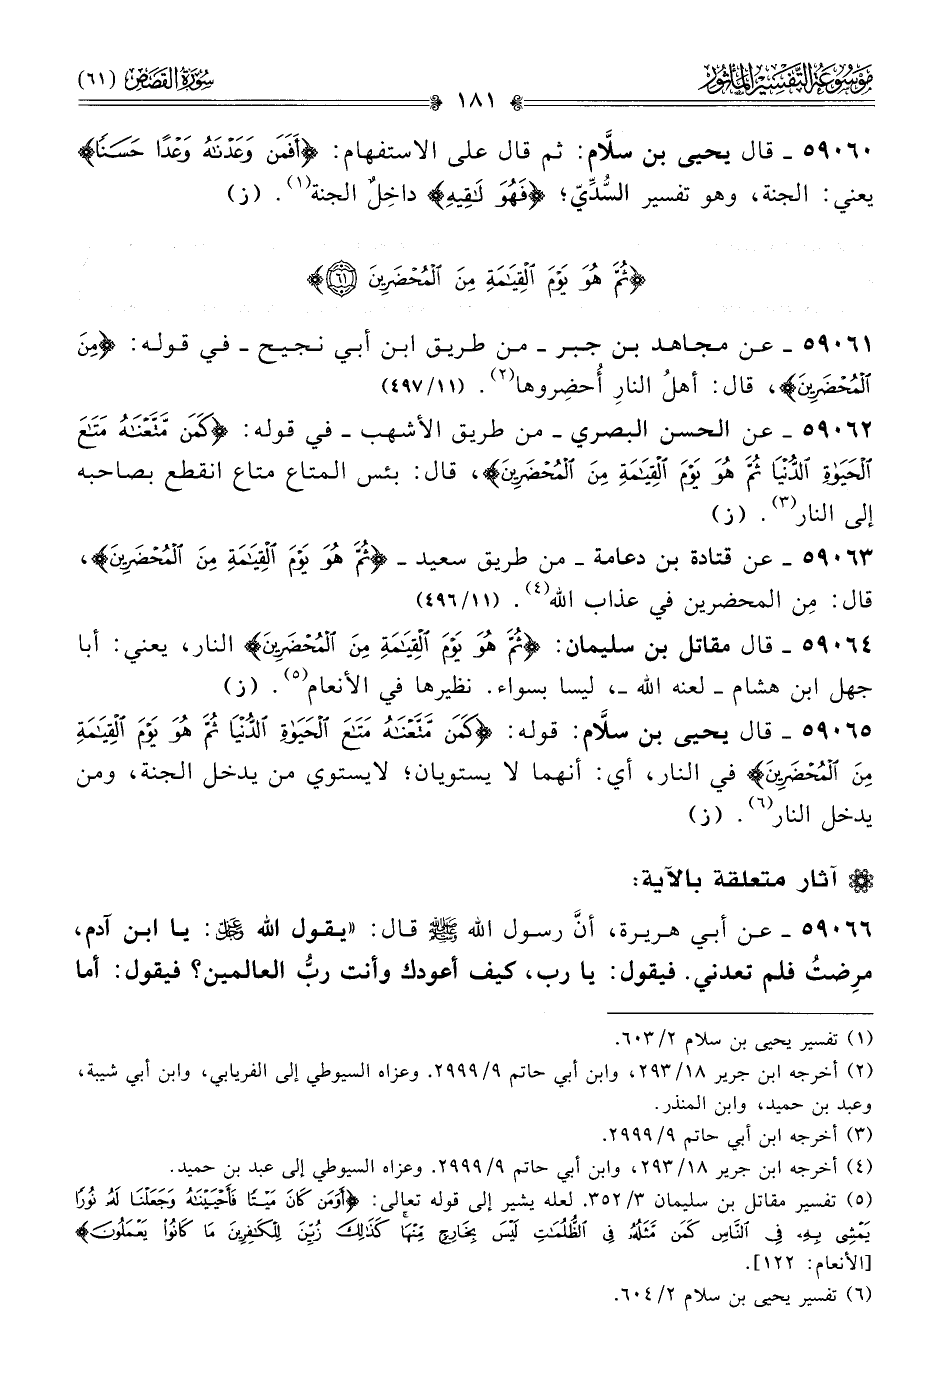 مَوْسُوعَةُ التَّفْسِيرِ المَأْثُور
سُورَةُ القَصَص (٦١)
١٨١
٥٩٠٦٠ ـ قال يحيى بن سلَّام: ثم قال على الاستفهام: ﴿أَفَمَن وَعَدْنَٰهُ وَعْدًا حَسَنًا﴾
يعني: الجنة، وهو تفسير السُّدِّيّ؛ ﴿فَهُوَ لَٰقِيهِ﴾ داخِلٌ الجنة(١). (ز)
﴿ثُمَّ هُوَ يَوْمَ ٱلْقِيَٰمَةِ مِنَ ٱلْمُحْضَرِينَ ۝٦١﴾
٥٩٠٦١ ـ عن مجاهد بن جبر ـ من طريق ابن أبي نجيح ـ في قوله: ﴿مِنَ
ٱلْمُحْضَرِينَ﴾، قال: أهلُ النارِ أُحضِروها(٢). (٤٩٧/١١)
٥٩٠٦٢ ـ عن الحسن البصري ـ من طريق الأشهب ـ في قوله: ﴿كَمَن مَّتَّعْنَٰهُ مَتَٰعَ
ٱلْحَيَوٰةِ ٱلدُّنْيَا ثُمَّ هُوَ يَوْمَ ٱلْقِيَٰمَةِ مِنَ ٱلْمُحْضَرِينَ﴾، قال: بئس المتاع متاع انقطع بصاحبه
إلى النار(٣). (ز)
٥٩٠٦٣ ـ عن قتادة بن دعامة ـ من طريق سعيد ـ ﴿ثُمَّ هُوَ يَوْمَ ٱلْقِيَٰمَةِ مِنَ ٱلْمُحْضَرِينَ﴾،
قال: مِن المحضرين في عذاب الله(٤). (٤٩٦/١١)
٥٩٠٦٤ ـ قال مقاتل بن سليمان: ﴿ثُمَّ هُوَ يَوْمَ ٱلْقِيَٰمَةِ مِنَ ٱلْمُحْضَرِينَ﴾ النار، يعني: أبا
جهل ابن هشام ـ لعنه الله ـ، ليسا بسواء. نظيرها في الأنعام(٥). (ز)
٥٩٠٦٥ ـ قال يحيى بن سلَّام: قوله: ﴿كَمَن مَّتَّعْنَٰهُ مَتَٰعَ ٱلْحَيَوٰةِ ٱلدُّنْيَا ثُمَّ هُوَ يَوْمَ ٱلْقِيَٰمَةِ
مِنَ ٱلْمُحْضَرِينَ﴾ في النار، أي: أنهما لا يستويان؛ لايستوي من يدخل الجنة، ومن
يدخل النار(٦). (ز)
آثار متعلقة بالآية:
٥٩٠٦٦ ـ عن أبي هريرة، أنَّ رسول الله ﷺ قال: «يقول الله ﷿: يا ابن آدم،
مرِضتُ فلم تعدني. فيقول: يا رب، كيف أعودك وأنت ربُّ العالمين؟ فيقول: أما
(١) تفسير يحيى بن سلام ٦٠٣/٢.
(٢) أخرجه ابن جرير ٢٩٣/١٨، وابن أبي حاتم ٢٩٩٩/٩. وعزاه السيوطي إلى الفريابي، وابن أبي شيبة،
وعبد بن حميد، وابن المنذر.
(٣) أخرجه ابن أبي حاتم ٢٩٩٩/٩.
(٤) أخرجه ابن جرير ٢٩٣/١٨، وابن أبي حاتم ٢٩٩٩/٩. وعزاه السيوطي إلى عبد بن حميد.
(٥) تفسير مقاتل بن سليمان ٣٥٢/٣. لعله يشير إلى قوله تعالى: ﴿أَوَمَن كَانَ مَيْتًا فَأَحْيَيْنَٰهُ وَجَعَلْنَا لَهُۥ نُورًا
يَمْشِى بِهِۦ فِى ٱلنَّاسِ كَمَن مَّثَلُهُۥ فِى ٱلظُّلُمَٰتِ لَيْسَ بِخَارِجٍ مِّنْهَا كَذَٰلِكَ زُيِّنَ لِلْكَٰفِرِينَ مَا كَانُوا۟ يَعْمَلُونَ﴾
[الأنعام: ١٢٢].
(٦) تفسير يحيى بن سلام ٦٠٤/٢.